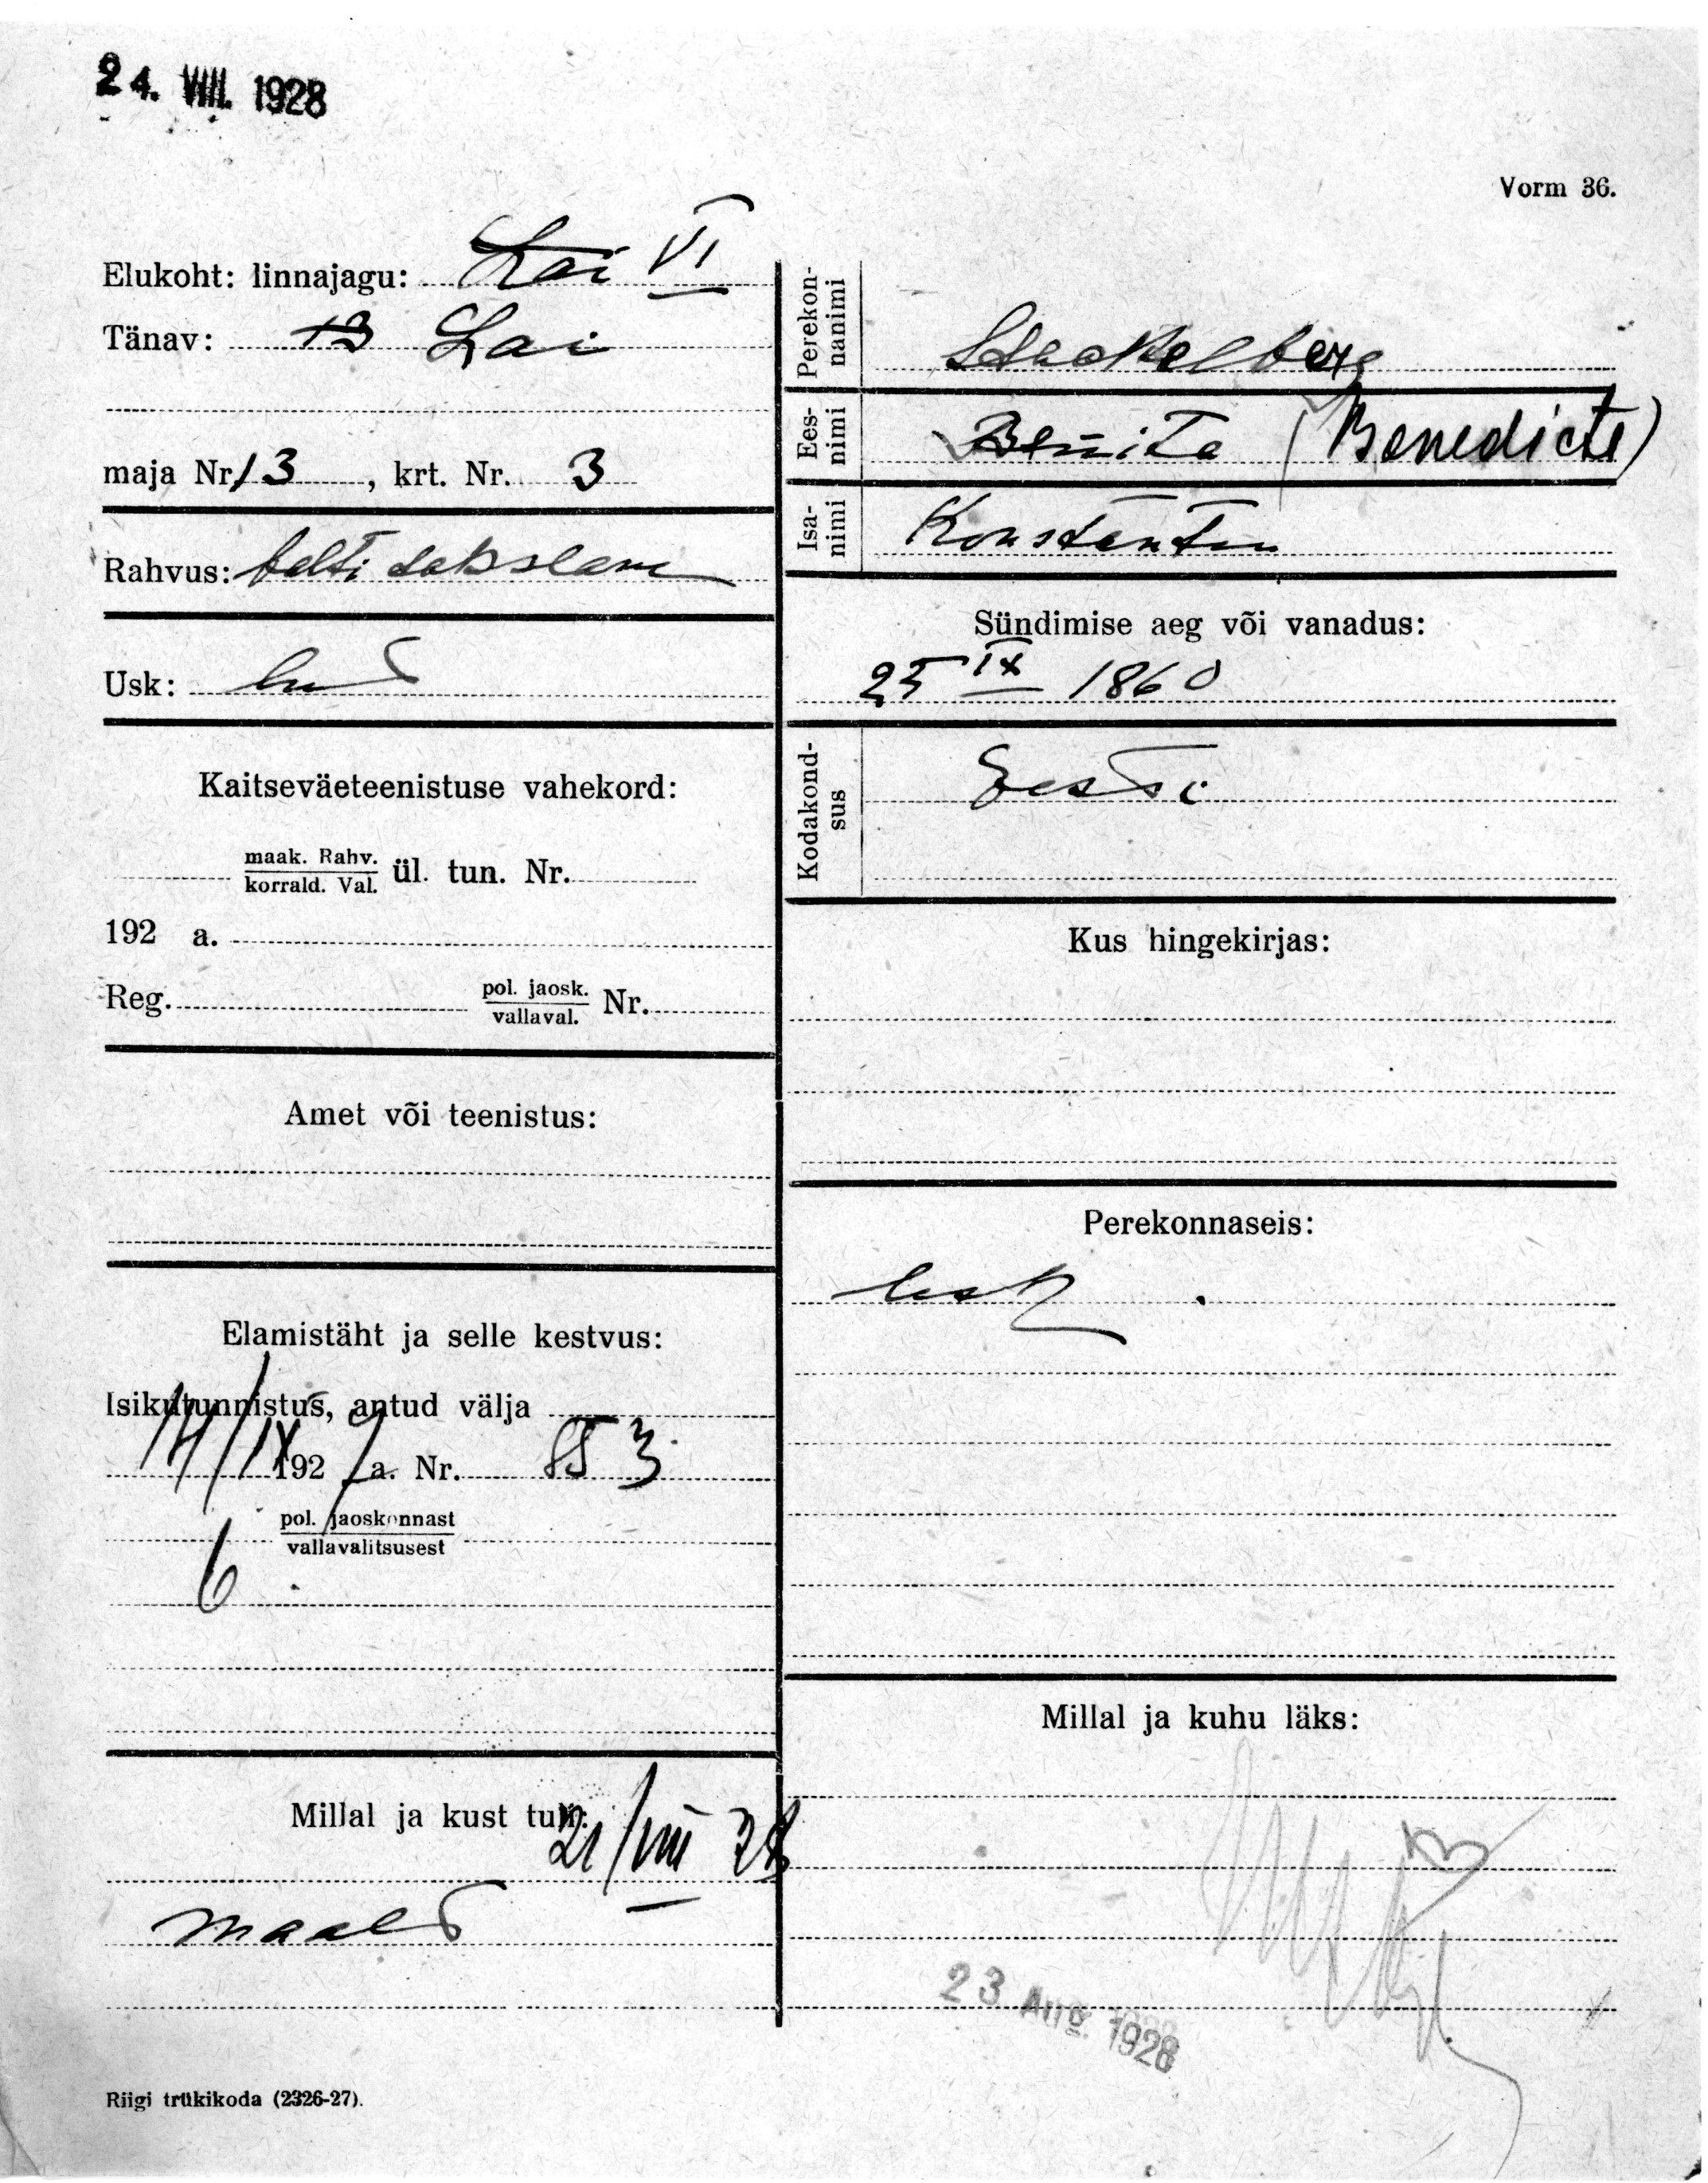 24. VIII. 1928
Vorm 36.
Elukoht: linnajagu: Lai VI
Tänav: 13 Lai
maja Nr. 13, krt. Nr. 3
Rahvus: balti sakslane
Usk: lut
Kaitseväeteenistuse vahekord:
maak. Rahv.
korrald. Val. ül. tun. Nr.
192 a.
Reg. pol. jaosk.
vallaval. Nr.
Amet või teenistus:
Elamistäht ja selle kestvus:
Isikutunnistus, antud välja
14/IX 192 7 a. Nr. 853
6 pol. jaoskonnast
vallavalitsusest
Millal ja kust tuli:
21/VIII 28
maalt
Riigi trükikoda (2326-27).
Perekon-
nanimi
Stackelberg
Ees-
nimi
Benita (Benedicte)
Isa-
nimi
Konstantin
Sündimise aeg või vanadus:
25 IX 1860
Kodakond-
sus
Eesti
Kus hingekirjas:
Perekonnaseis:
lesk
Millal ja kuhu läks:
23 Aug. 1928